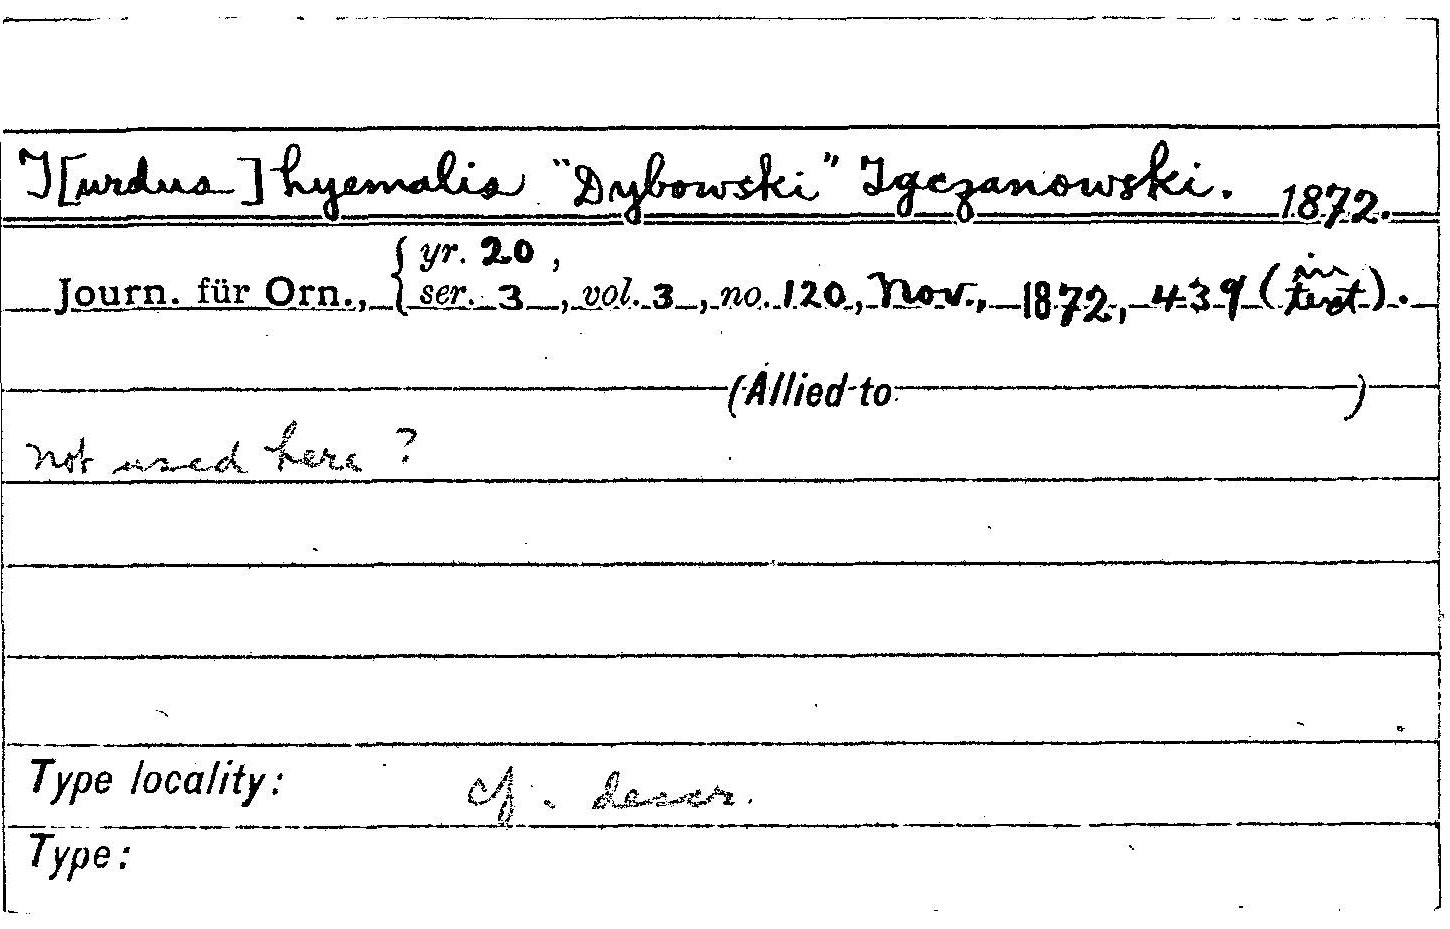 T[urdus] hyemalis "Dybowski" Taczanowski. 1872.
Journ. für Orn., { yr. 20, ser. 3, vol. 3, no. 120, Nov., 1872, 439 (in text).
(Allied to )
not used here?
Type locality: cf. descr.
Type: